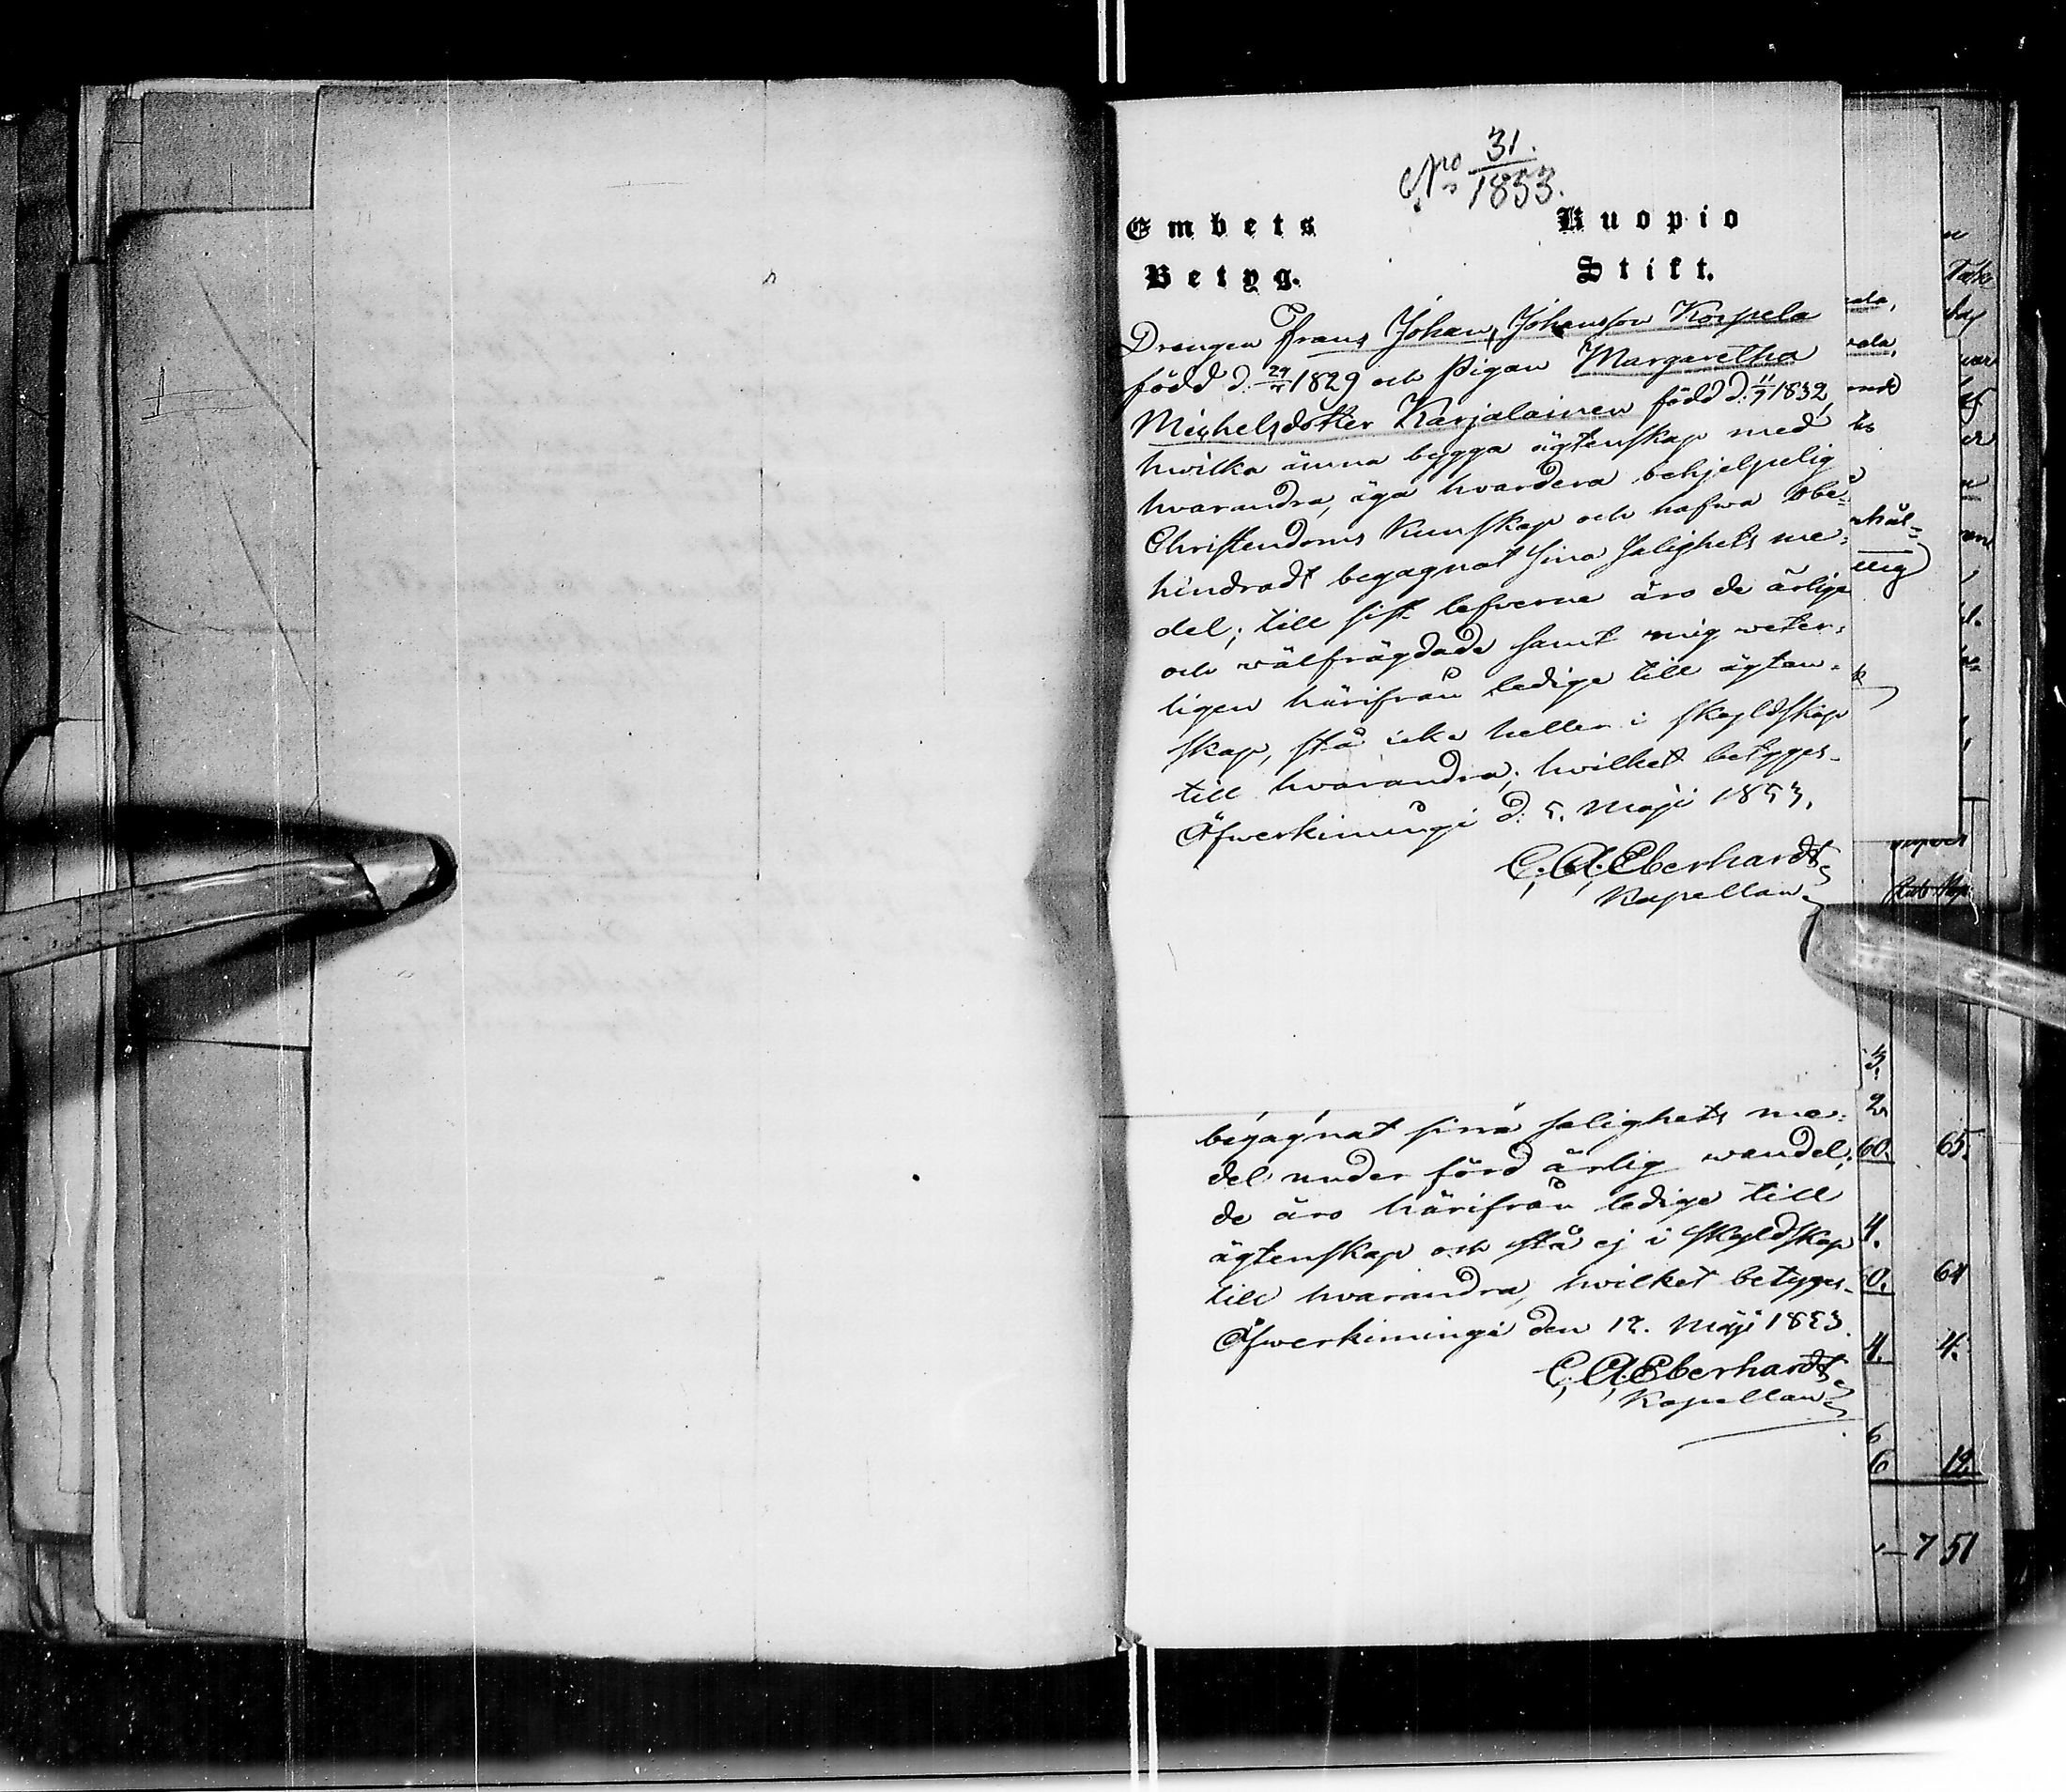 No 31.
1853.
Embets Kuopio
Betyg. Stift.
Drengen Frans Johan, Johansson Korpela
född d. 29/5 1829 och Pigan Margaretha
Michelsdotter Karjalainen född d. 11/7 1832,
hwilka ämna bygga ägtenskap med
hvarandra, äga hvardera behjelpelig
Christendoms Kunskap och hafwa obe-
hindradt begagnat sina salighets me-
del; till sist lefverne äro de ärlige
och wälfrägdade samt mig weter-
ligen härifrån ledige till ägten-
skap, stå icke heller i skyldskap
till hvarandra; hvilket betyges.
Öfwerkimingi d. 5. Maji 1853.
C. A. Eberhardt
Kapellan
begagnat sina salighets me-
del under förd ärlig wandel;
de äro härifrån ledige till
ägtenskap och stå ej i skyldskap
till hvarandra, hvilket betyges.
Öfwerkimingi den 12. Maji 1853.
C. A. Eberhardt
Kapellan
3.
2.
60. 65.
4.
0. 64
4. 4.
6
6 12
7 51